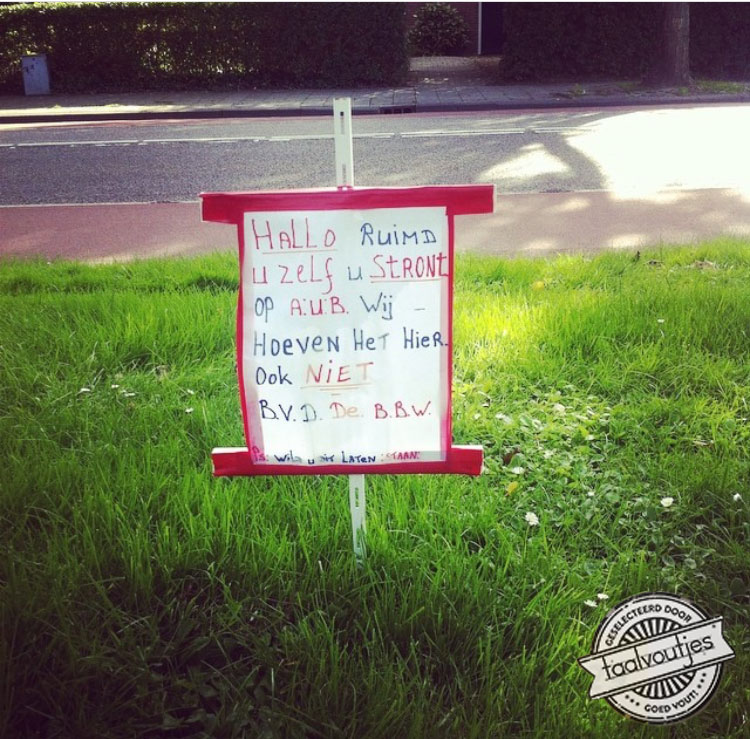 HALLO RUIMD
u zelf u STRONT
OP A.U.B. Wij -
HOEVEN HET HIER.
OOK NIET
B.V.D. De B.B.W.
P.s. wilt u dit LATEN STAAN.
GESELECTEERD DOOR
taalvoutjes
GOED VOUT!